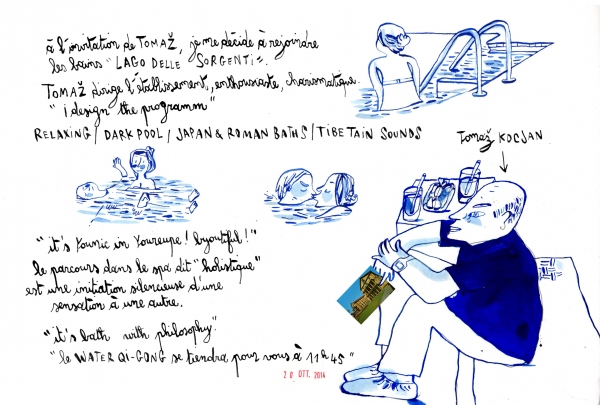 à l'invitation de TOMAŽ, je me décide à rejoindre
les bains "LAGO DELLE SORGENTI".
TOMAŽ dirige l'établissement, enthousiaste, charismatique.
"i design the programm"
RELAXING / DARK POOL / JAPAN & ROMAN BATHS / TIBETAIN SOUNDS
Tomaž KOCJAN
"it's Younic in Youreupe! byoutiful!"
le parcours dans le spa dit "holistique"
est une initiation silencieuse d'une
sensation à une autre.
"it's bath with philosophy"
"le WATER QI-GONG se tiendra pour vous à 11h45"
20 OTT. 2014